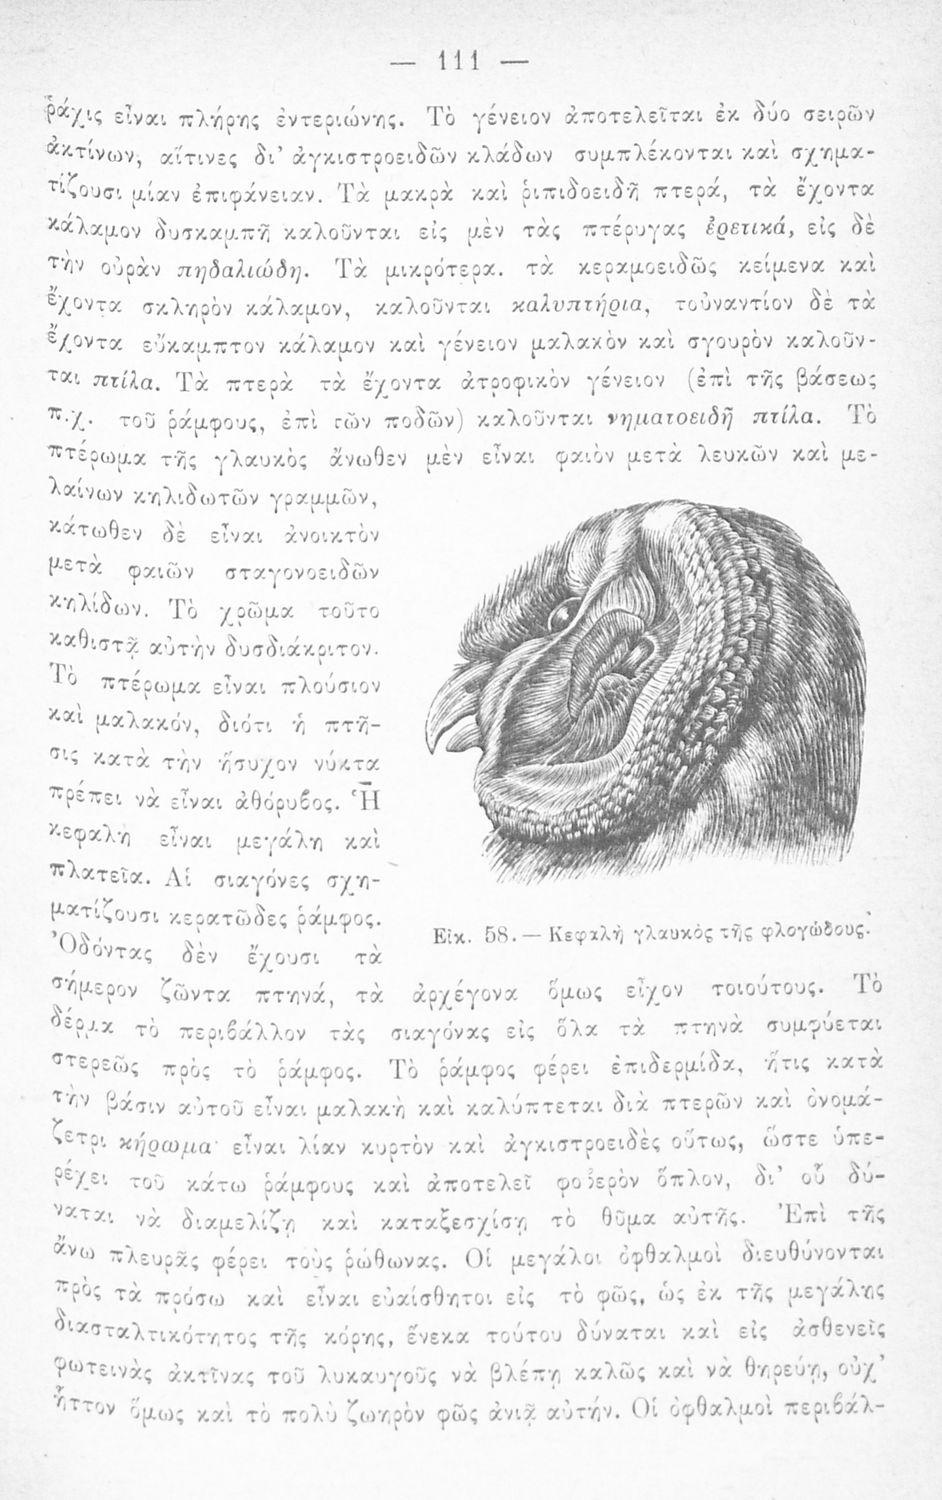 — 111 —
ῥάχις εἶναι πλήρης ἐντεριώνης. Τὸ γένειον ἀποτελεῖται ἐκ δύο σειρῶν
ἀκτίνων, αἵτινες δι’ ἀγκιστροειδῶν κλάδων συμπλέκονται καὶ σχημα-
τίζουσι μίαν ἐπιφάνειαν. Τὰ μακρὰ καὶ ῥιπιδοειδῆ πτερά, τὰ ἔχοντα
κάλαμον δυσκαμπῆ καλοῦνται εἰς μὲν τὰς πτέρυγας ἐρετικά, εἰς δὲ
τὴν οὐρὰν πηδαλιώδη. Τὰ μικρότερα. τὰ κεραμοειδῶς κείμενα καὶ
ἔχοντα σκληρὸν κάλαμον, καλοῦνται καλυπτήρια, τοὐναντίον δὲ τὰ
ἔχοντα εὔκαμπτον κάλαμον καὶ γένειον μαλακὸν καὶ σγουρὸν καλοῦν-
ται πτίλα. Τὰ πτερὰ τὰ ἔχοντα ἀτροφικὸν γένειον (ἐπὶ τῆς βάσεως
π.χ. τοῦ ῥάμφους, ἐπὶ τῶν ποδῶν) καλοῦνται νηματοειδῆ πτίλα. Τὸ
πτέρωμα τῆς γλαυκὸς ἄνωθεν μὲν εἶναι φαιὸν μετὰ λευκῶν καὶ με-
λαίνων κηλιδωτῶν γραμμῶν,
κάτωθεν δὲ εἶναι ἀνοικτὸν
μετὰ φαιῶν σταγονοειδῶν
κηλίδων. Τὸ χρῶμα τοῦτο
καθιστᾷ αὐτὴν δυσδιάκριτον.
Τὸ πτέρωμα εἶναι πλούσιον
καὶ μαλακόν, διότι ἡ πτῆ-
σις κατὰ τὴν ἥσυχον νύκτα
πρέπει νὰ εἶναι ἀθόρυβος. Ἡ
κεφαλὴ εἶναι μεγάλη καὶ
πλατεῖα. Αἱ σιαγόνες σχη-
ματίζουσι κερατῶδες ῥάμφος.
Ὀδόντας δὲν ἔχουσι τὰ
Εἰκ. 58.— Κεφαλὴ γλαυκὸς τῆς φλογώδους.
σήμερον ζῶντα πτηνά, τὰ ἀρχέγονα ὅμως εἶχον τοιούτους. Τὸ
δέρμα τὸ περιβάλλον τὰς σιαγόνας εἰς ὅλα τὰ πτηνὰ συμφύεται
στερεῶς πρὸς τὸ ῥάμφος. Τὸ ῥάμφος φέρει ἐπιδερμίδα, ἥτις κατὰ
τὴν βάσιν αὐτοῦ εἶναι μαλακὴ καὶ καλύπτεται διὰ πτερῶν καὶ ὀνομά-
ζετρι κήρωμα· εἶναι λίαν κυρτὸν καὶ ἀγκιστροειδὲς οὕτως, ὥστε ὑπε-
ρέχει τοῦ κάτω ῥάμφους καὶ ἀποτελεῖ φοβερὸν ὅπλον, δι’ οὗ δύ-
ναται νὰ διαμελίζῃ καὶ καταξεσχίσῃ τὸ θῦμα αὐτῆς. Ἐπὶ τῆς
ἄνω πλευρᾶς φέρει τοὺς ῥώθωνας. Οἱ μεγάλοι ὀφθαλμοὶ διευθύνονται
πρὸς τὰ πρόσω καὶ εἶναι εὐαίσθητοι εἰς τὸ φῶς, ὡς ἐκ τῆς μεγάλης
διασταλτικότητος τῆς κόρης, ἕνεκα τούτου δύναται καὶ εἰς ἀσθενεῖς
φωτεινὰς ἀκτῖνας τοῦ λυκαυγοῦς νὰ βλέπῃ καλῶς καὶ νὰ θηρεύῃ, οὐχ’
ἧττον ὅμως καὶ τὸ πολὺ ζωηρὸν φῶς ἀνιᾷ αὐτήν. Οἱ ὀφθαλμοὶ περιβάλ-